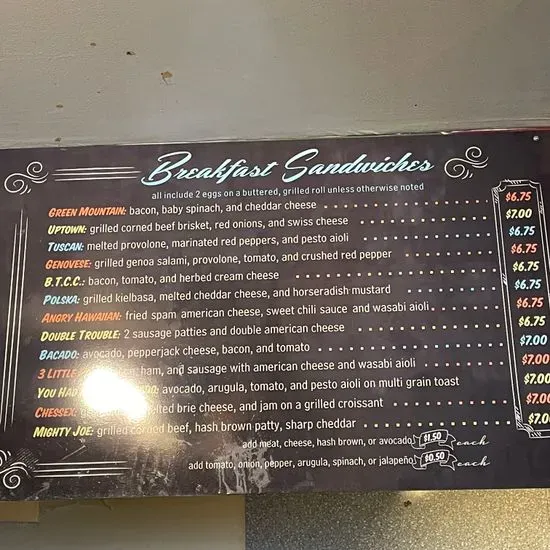 Breakfast Sandwiches
all include 2 eggs on a buttered, grilled roll unless otherwise noted
GREEN MOUNTAIN: bacon, baby spinach, and cheddar cheese $6.75
UPTOWN: grilled corned beef brisket, red onions, and swiss cheese $7.00
TUSCAN: melted provolone, marinated red peppers, and pesto aioli $6.75
GENOVESE: grilled genoa salami, provolone, tomato, and crushed red pepper $6.75
B.T.C.C.: bacon, tomato, and herbed cream cheese $6.75
POLSKA: grilled kielbasa, melted cheddar cheese, and horseradish mustard $6.75
ANGRY HAWAIIAN: fried spam american cheese, sweet chili sauce and wasabi aioli $6.75
DOUBLE TROUBLE: 2 sausage patties and double american cheese $6.75
BACADO: avocado, pepperjack cheese, bacon, and tomato $7.00
3 LITTLE ham, and sausage with american cheese and wasabi aioli $7.00
YOU HAD avocado, arugula, tomato, and pesto aioli on multi grain toast $7.00
CHESSEX: melted brie cheese, and jam on a grilled croissant $7.00
MIGHTY JOE: grilled corned beef, hash brown patty, sharp cheddar $7.00
add meat, cheese, hash brown, or avocado $1.50 each
add tomato, onion, pepper, arugula, spinach, or jalapeño $0.50 each